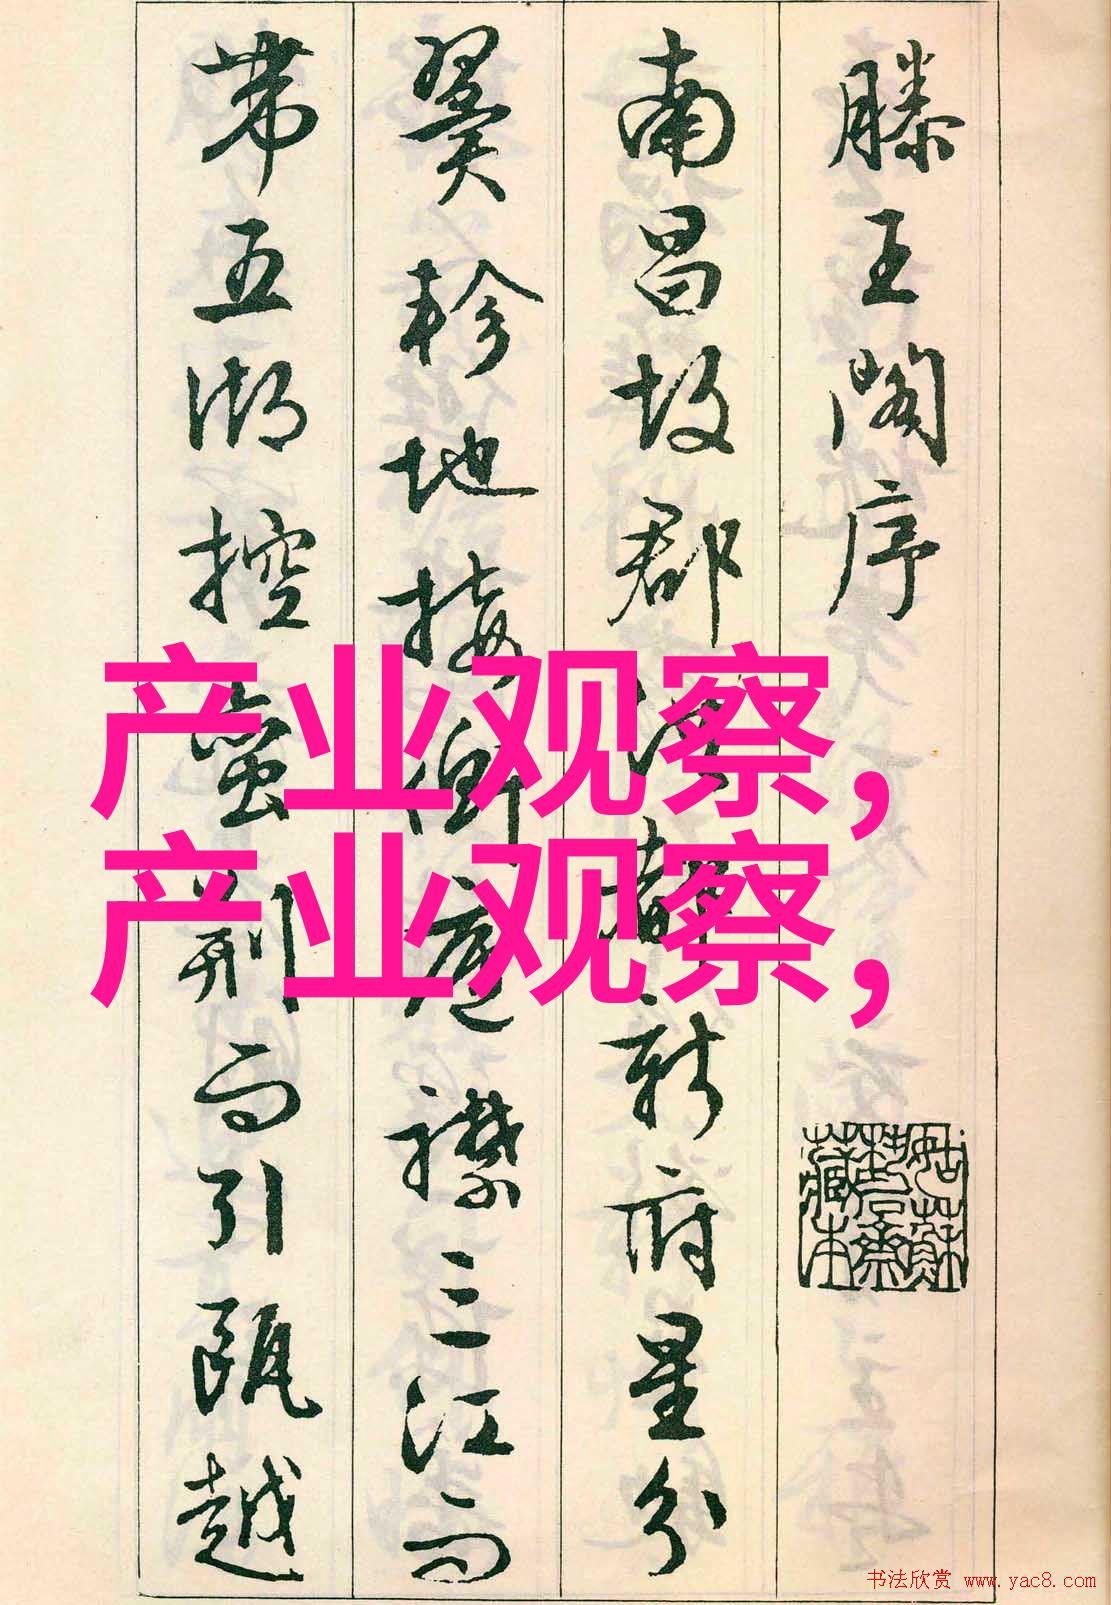 滕王阁序
南昌故郡洪都新府星分
翼軫地接衡庐襟三江而
带五湖控蛮荆而引瓯越
产业观察,
产业观察,
书法欣赏 www.yac8.com